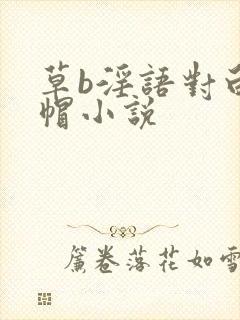 草b淫語對白
帽小說
簾卷落花如雪